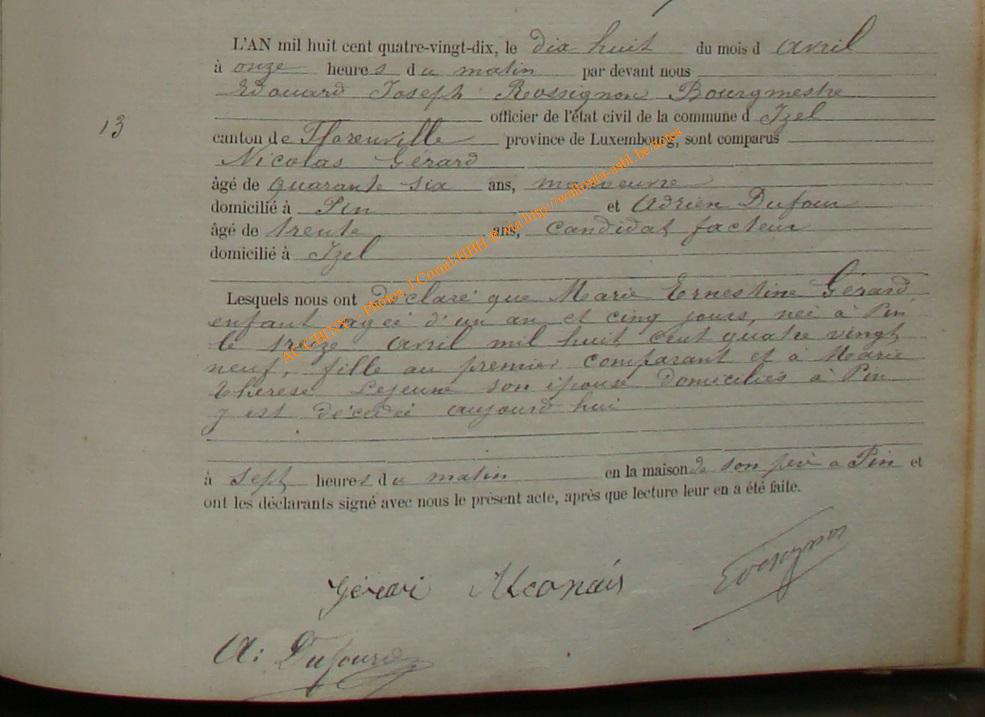 L'AN mil huit cent quatre-vingt-dix, le dix huit du mois d avril
à onze heures du matin par devant nous
Edouard Joseph Rossignon Bourgmestre
officier de l'état civil de la commune d Izel
13
canton de Florenville province de Luxembourg, sont comparus
Nicolas Gérard
âgé de quarante six ans, manoeuvre
domicilié à Pin et Adrien Dufour
âgé de trente ans, candidat facteur
domicilié à Izel
Lesquels nous ont déclaré que Marie Ernestine Gérard
enfant agée d'un an et cinq jours, née à Pin
le treize avril mil huit cent quatre vingt
neuf, fille au premier comparant et à Marie
Thérèse Lejeune son épouse domiciliés à Pin
y est décédée aujourd hui
à sept heures du matin en la maison de son père a Pin et
ont les déclarants signé avec nous le présent acte, après que lecture leur en a été faite.
A: Dufour